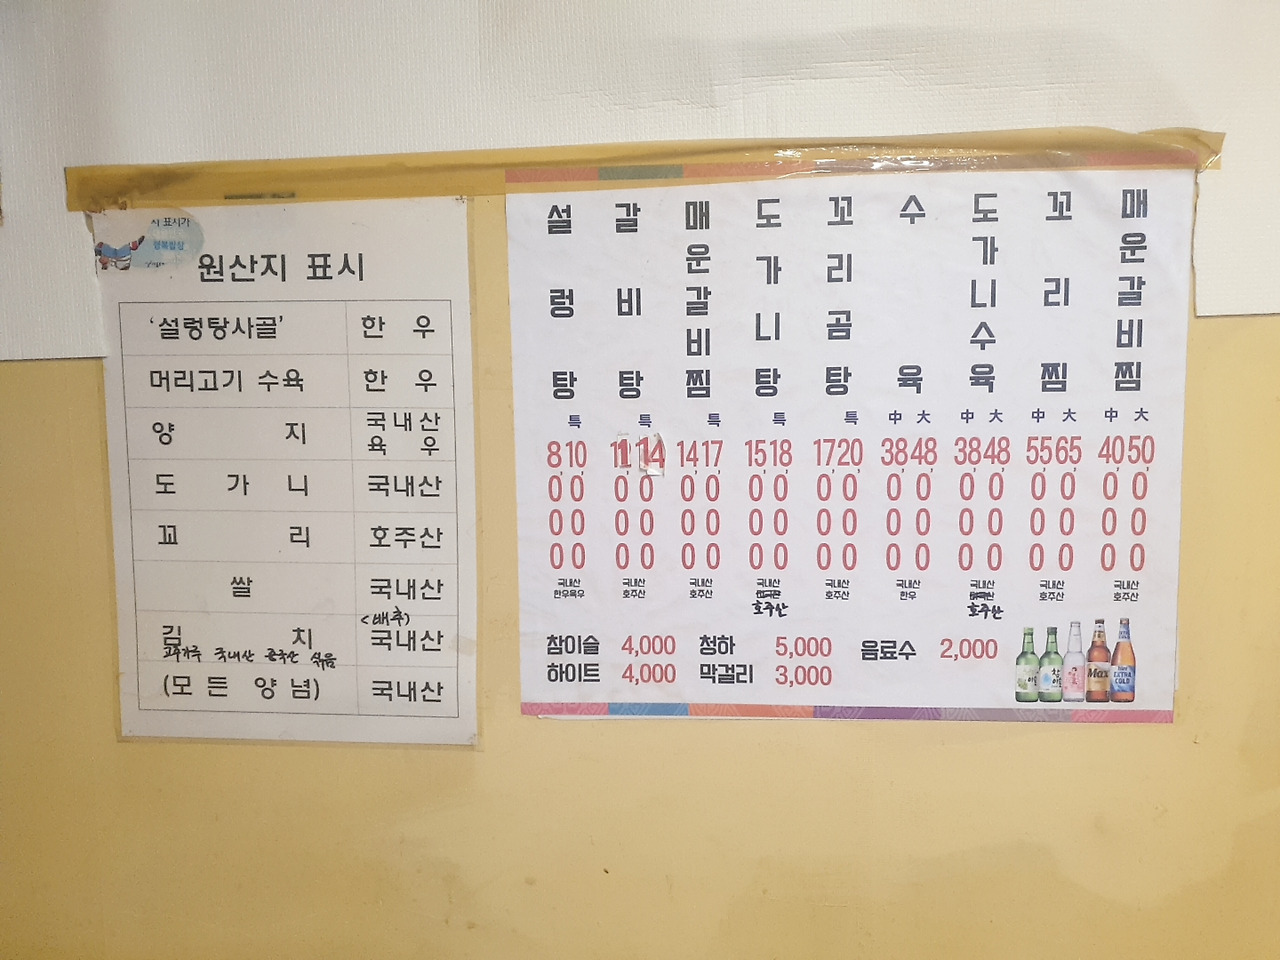 시 표시가
행복밥상
원산지 표시
'설렁탕사골' 한 우
머리고기 수육 한 우
양 지 국내산 육 우
도 가 니 국내산
꼬 리 호주산
쌀 국내산
<배추>
김 치 국내산
고추가루 국내산 중국산 섞음
(모 든 양 념) 국내산
설렁탕 특 8,000 10,000 국내산 한우육우
갈비탕 특 11,000 14,000 국내산 호주산
매운갈비찜 특 14,000 17,000 국내산 호주산
도가니탕 특 15,000 18,000 국내산 호주산
꼬리곰탕 특 17,000 20,000 국내산 호주산
수육 中 大 38,000 48,000 국내산 한우
도가니수육 中 大 38,000 48,000 국내산 호주산
꼬리찜 中 大 55,000 65,000 국내산 호주산
매운갈비찜 中 大 40,000 50,000 국내산 호주산
참이슬 4,000 청하 5,000 음료수 2,000
하이트 4,000 막걸리 3,000
Max
EXTRA
COLD